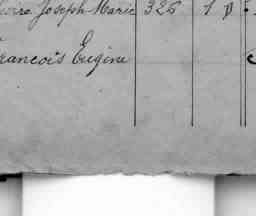 Joseph Marie 326 1 p
rancois Eugène